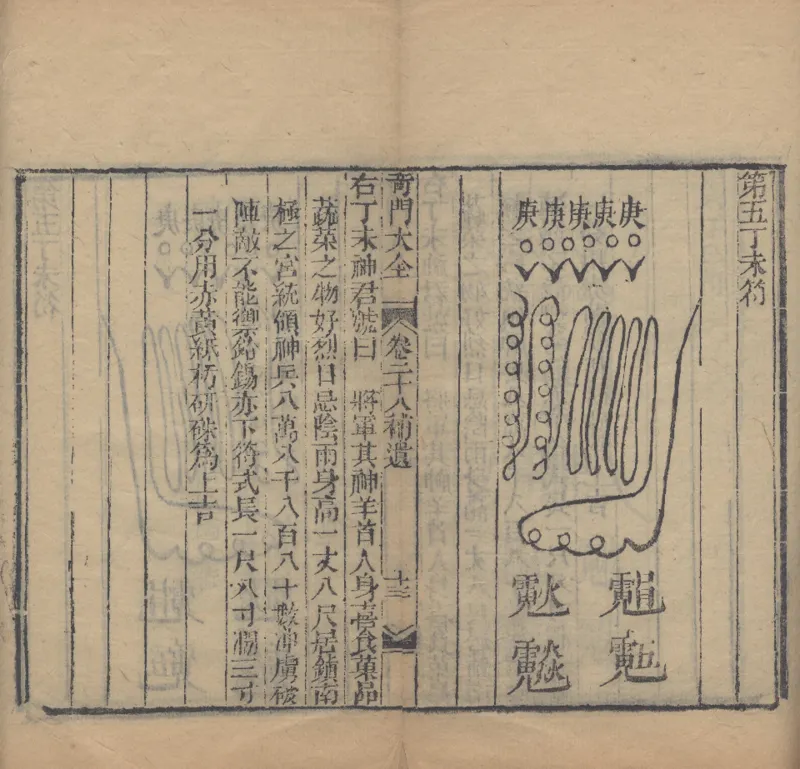 第五丁未符
庚庚庚庚庚
奇門大全
卷二十八補遺
十三
右丁未神君號曰　將軍其神羊首人身喜食菓品
蔬菜之物好烈日忌陰雨身高一丈八尺居鎮南
極之宮統領神兵八萬八千八百八十數冲虜破
陣敵不能禦鉛錫亦下符式長一尺八寸濶三寸
一分用赤黃紙朽研硃爲上吉